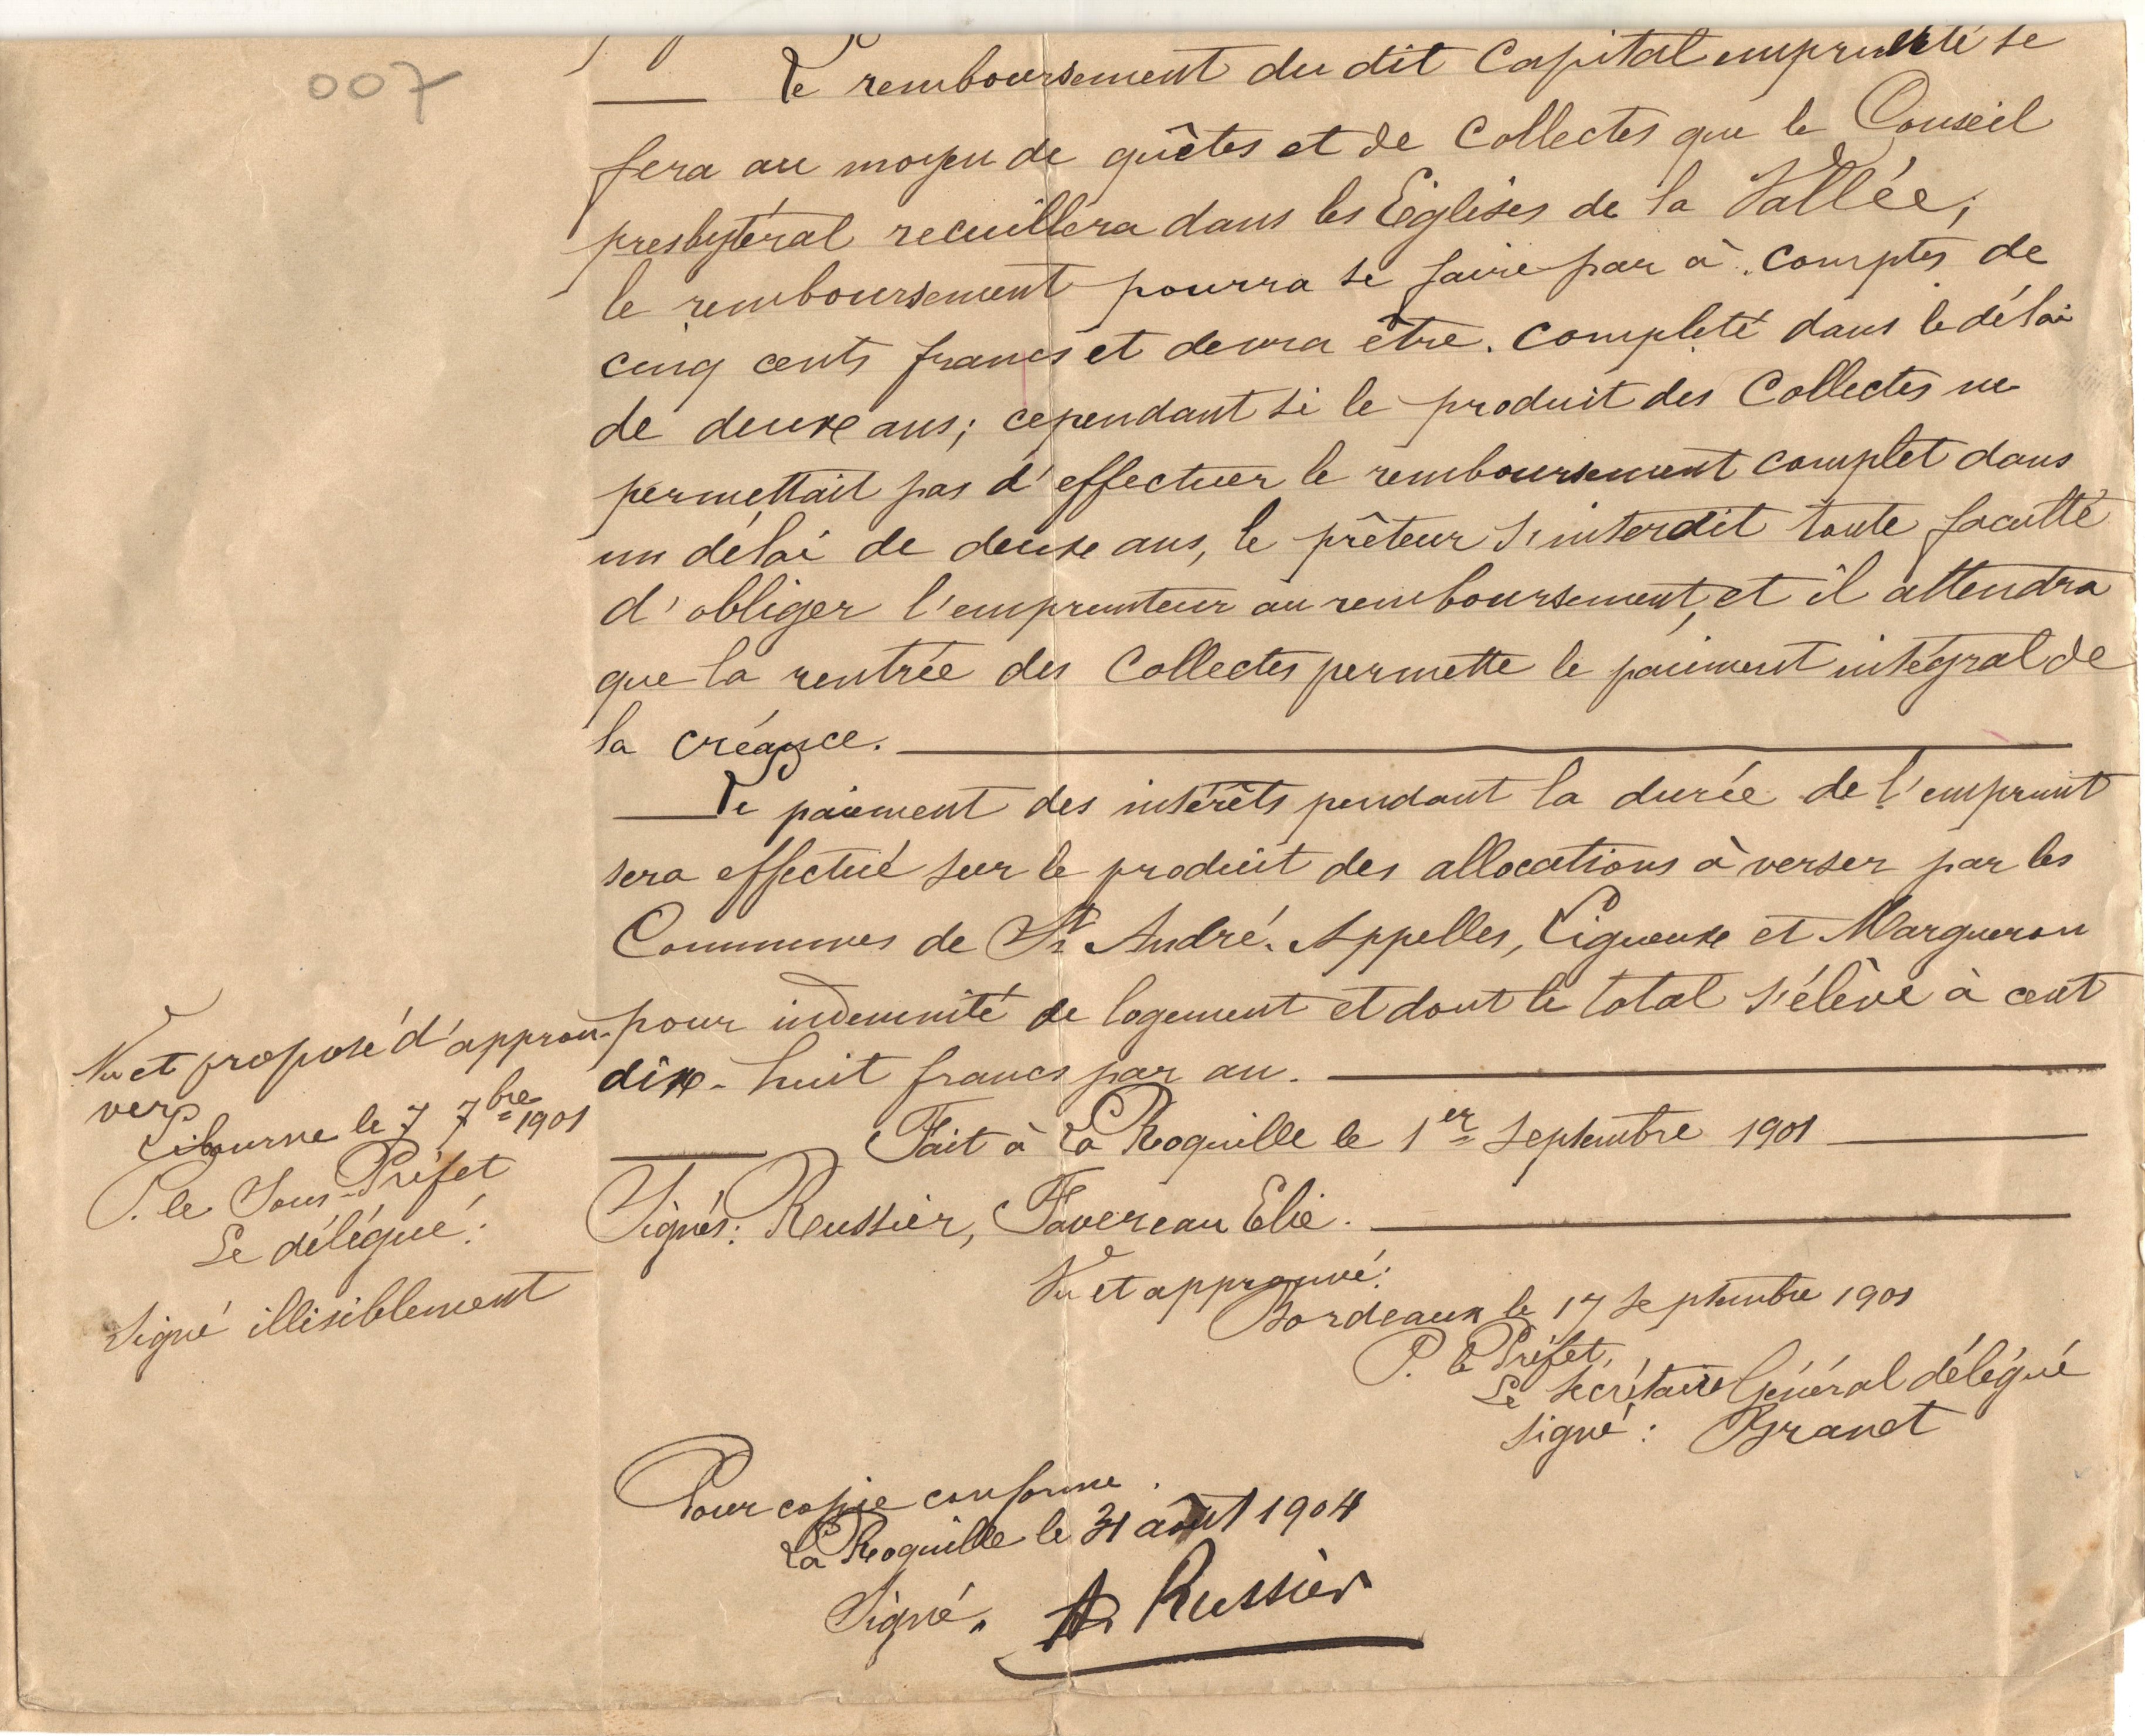 007
Le remboursement du dit Capital emprunté se
fera au moyen de quêtes et de Collectes que le Conseil
presbytéral recuillera dans les Eglises de la Vallée;
le remboursement pourra se faire par à. comptes de
cinq cents francs et devra être. completé dans le délai
de deux ans; cependant si le produit des Collectes ne
permettait pas d'effectuer le remboursement complet dans
un délai de deux ans, le prêteur s'interdit toute faculté
d'obliger l'emprunteur au remboursement, et il attendra
que la rentrée des Collectes permette le paiement intégral de
la créance.
Le paiement des intérêts pendant la durée de l'emprunt
sera effectué sur le produit des allocations à verser par les
Communes de St André. Appelles, Ligueux et Margueron
pour indemnité de logement et dont le total s'élève à cent
dix-huit francs par an.
Fait à La Roquille le 1er Septembre 1901
Signés: Russier, Favereau Elie.
Vu et proposé d'approu-
ver
Libourne le 7 7bre 1901
P. le Sous-Préfet
Le délégué:
Signé illisiblement
Vu et approuvé:
Bordeaux le 17 Septembre 1901
P. le Préfet,
Le Secrétaire Général délégué
signé: Branet
Pour copie conforme.
La Roquille le 31 août 1904
Signé. A. Russier